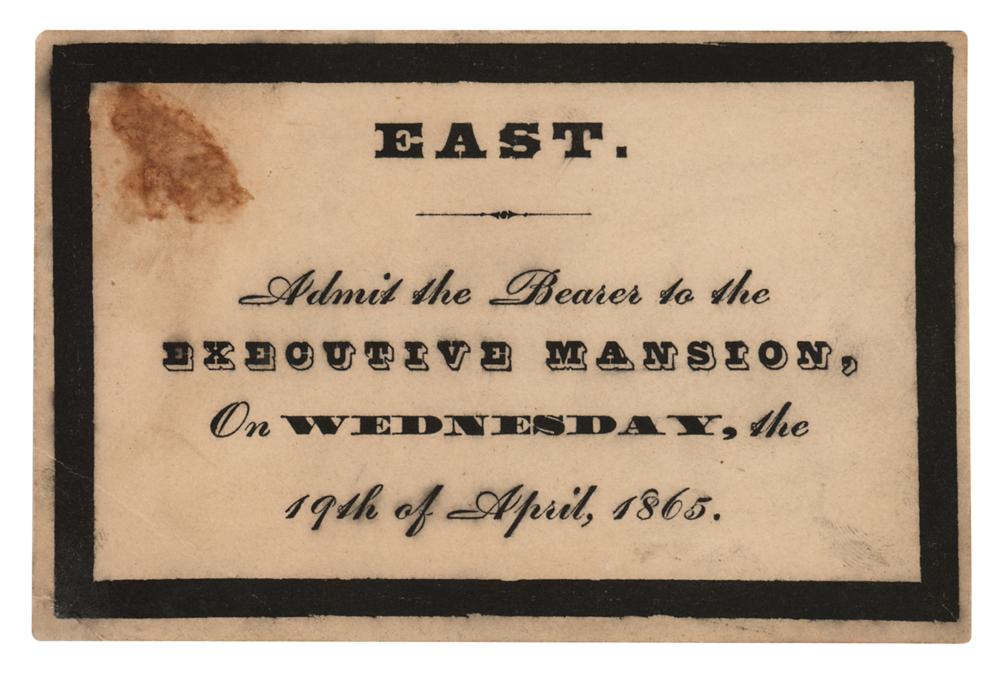 EAST.
Admit the Bearer to the
EXECUTIVE MANSION,
On WEDNESDAY, the
19th of April, 1865.